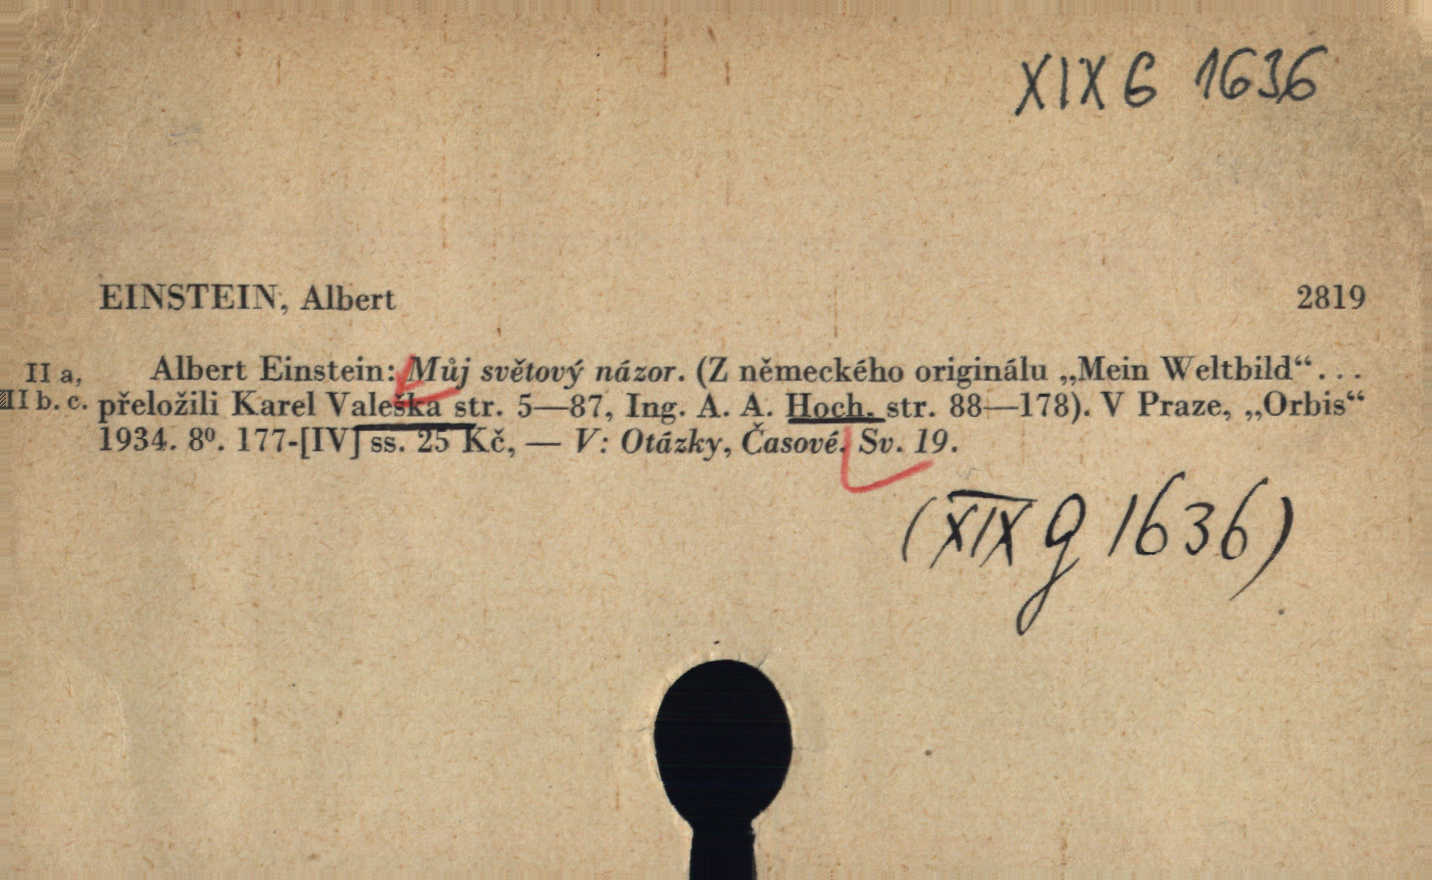 XIX G 1636
EINSTEIN, Albert 2819
II a, Albert Einstein: Můj světový názor. (Z německého originálu „Mein Weltbild“...
III b. c. přeložili Karel Valeška str. 5—87, Ing. A. A. Hoch. str. 88—178). V Praze, „Orbis“
1934. 8⁰. 177-[IV] ss. 25 Kč, — V: Otázky, Časové. Sv. 19.
(XIX g 1636)